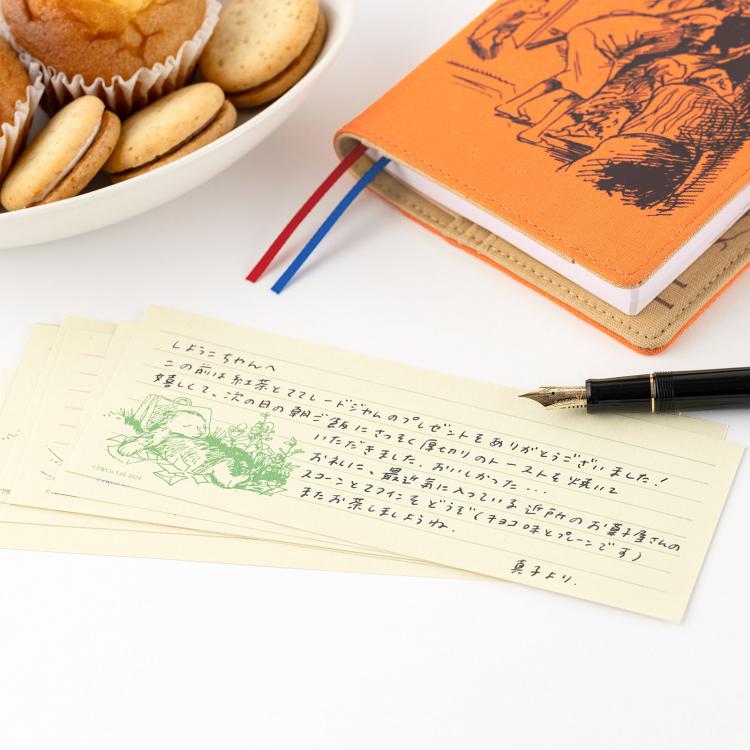 しょうこちゃんへ
この前は紅茶とママレードジャムのプレゼントをありがとうございました!
嬉しくて、次の日の朝ご飯にさっそく厚切りのトーストを焼いて
いただきました。おいしかった...
お礼に、最近気に入っている近所のお菓子屋さんの
スコーンとマフィンをどうぞ(チョコ味とプレーンです)
またお茶しましょうね。
真子より.
©P&Co. Ltd. 2024